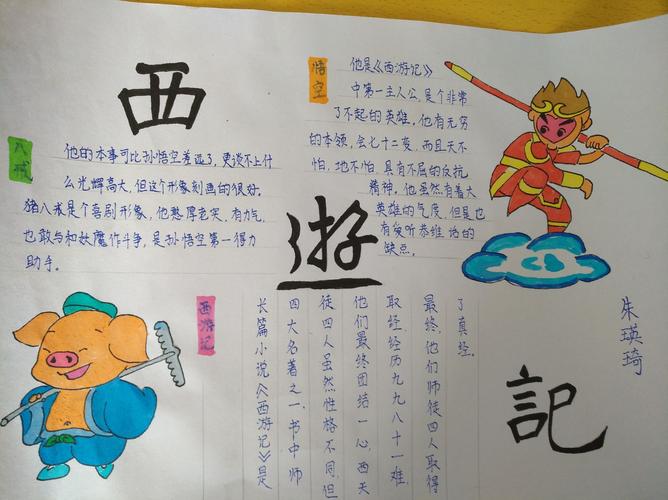 西
遊
記
悟空
他是《西游记》
中第一主人公,是个非常
了不起的英雄。他有无穷
的本领,会七十二变,而且天不
怕,地不怕,具有不屈的反抗
精神。他虽然有着大
英雄的气度,但是也
有爱听恭维话的
缺点。
八戒
他的本事可比孙悟空差远了,更谈不上什
么光辉高大,但这个形象刻画的很好。
猪八戒是个喜剧形象,他憨厚老实,有力气,
也敢与和妖魔作斗争,是孙悟空第一得力
助手。
西游记
长篇小说《西游记》是
四大名著之一.书中师
徒四人虽然性格不同,但
他们最终团结一心,西天
取经.经历九九八十一难,
最终.他们师徒四人取得
了真经.
朱瑛琦